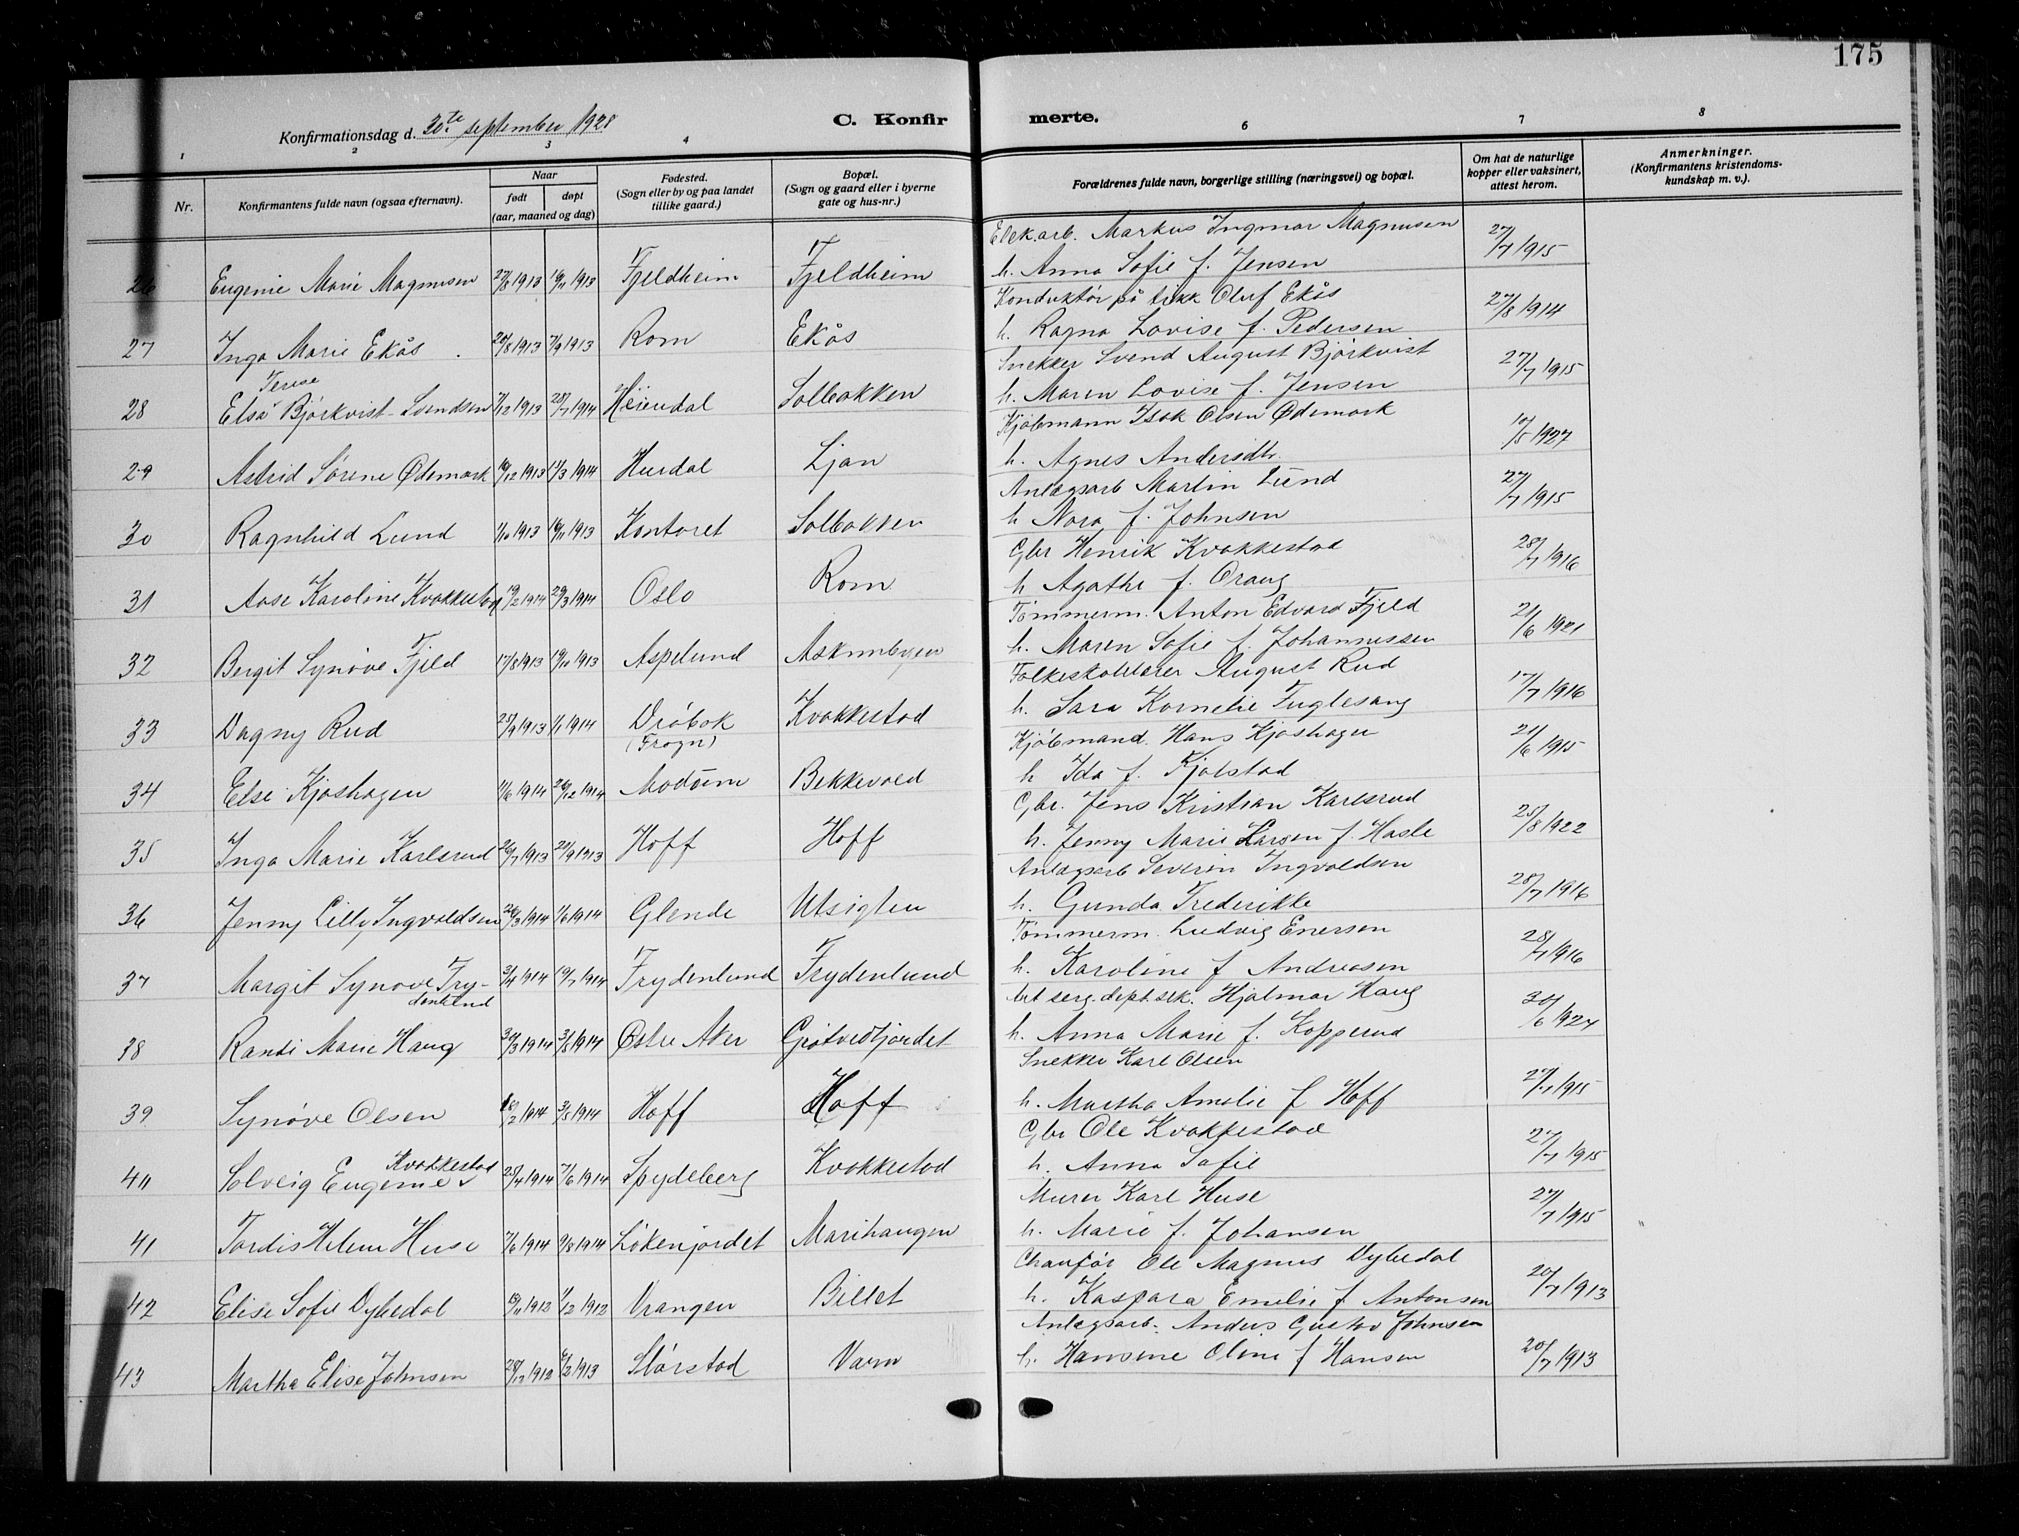 175
Konfirmationsdag d. 30te september 1928
C. Konfirmerte.
1 2 3 4 5 6 7 8
Nr.
Konfirmantens fulde navn (ogsaa efternavn).
Naar
født døpt
(aar, maaned og dag)
Fødested.
(Sogn eller by og paa landet
tillike gaard.)
Bopæl.
(Sogn og gaard eller i byerne
gate og hus-nr.)
Forældrenes fulde navn, borgerlige stilling (næringsvei) og bopæl.
Om hat de naturlige
kopper eller vaksinert,
attest herom.
Anmerkninger.
(Konfirmantens kristendoms-
kundskap m. v.).
Elek.arb. Markus Ingmar Magnusen
26 Eugenie Marie Magnusen 27/8 1913 16/11 1913 Fjeldheim Fjeldheim h. Anna Sofie f. Jensen 27/7 1915
Konduktør på Oluf Ekås
27 Inga Marie Ekås 20/8 1913 7/9 1913 Rom Ekås h. Ragna Lovise f. Pedersen 27/8 1914
Snekker Svend August Bjørkvist
Terese
28 Elsa Bjørkvist-Svendsen 7/12 1913 Heiendal Solbakken h. Maren Lovise f. Jensen 27/7 1915
Kjøbmann Isak Olsen Ødemark
29 Astrid Sørene Ødemark 16/12 1913 Hurdal Ljan h. Agnes Andersdtr. 10/5 1927
Anlægsarb Martin Lund
30 Ragnhild Lund 1/10 1913 16/11 1913 Kontoret Solbakken h Nora f. Johnsen 27/7 1915
Gbr Henrik Kvakkestad
31 Aase Karoline Kvakkestad 19/2 1914 29/3 1914 Oslo Rom h Agathe f. Oraug 28/7 1916
Tømmerm. Anton Edvard Fjeld
32 Bergit Synøve Fjeld 17/8 1913 19/10 1913 Aspelund Askimbyen h. Maren Sofie f. Johannessen 21/6 1921
Folkeskolelærer August Rud
33 Dagny Rud 25/9 1913 1/1 1914 Drøbak Kvakkestad h. Sara Kornelie Fuglesang 17/7 1916
(Frogn)
Kjøbmand. Hans Kjoshagen
34 Else Kjoshagen 11/6 1914 26/12 1914 Modum Bekkevold h Ida f. Kjølstad 21/6 1915
Gbr. Jens Kristian Karlsrud
35 Inga Marie Karlsrud 26/7 1913 21/9 1913 Hoff Hoff h. Jenny Marie Larsen f. Hasle 25/8 1922
Anlægsarb Severin Ingvaldsen
36 Jenny Lilly Ingvaldsen 26/3 1914 1/6 1914 Glende Utsigten h. Gunda Frederikke 28/7 1916
Tømmerm. Ludvig Enersen
37 Margit Synøve Fry- 3/4 1914 19/7 1914 Frydenlund Frydenlund h. Karoline f Andreasen 28/7 1916
denlund
dept.sek. Hjalmar Haug
38 Randi Marie Haug 30/3 1914 3/5 1914 Østre Aker Grøtvedtjordet h. Anna Marie f. Kopperud 30/6 1924
Snekker Karl Olsen
39 Synøve Olsen 18/2 1914 3/5 1914 Hoff Hoff h. Martha Amalie f Hoff 27/7 1915
Gbr Ole Kvakkestad
Kvakkestad
40 Solveig Eugenie 25/4 1914 7/6 1914 Spydeberg Kvakkestad h. Anna Sofie 27/7 1915
Murer Karl Huse
41 Tordis Helene Huse 7/6 1914 9/8 1914 Løkenjordet Marihaugen h. Marie f. Johansen 27/7 1915
Chaufør Ole Magnus Dybedal
42 Elise Sofie Dybedal 1912 1912 Vrangen Billet h. Kaspara Emelie f Antonsen 20/7 1913
Anlægsarb. Anders Gustav Johnsen
43 Martha Elise Johnsen 28/12 1912 1913 Slørstad Varm h. Hansine Oline f Hansen 20/7 1913